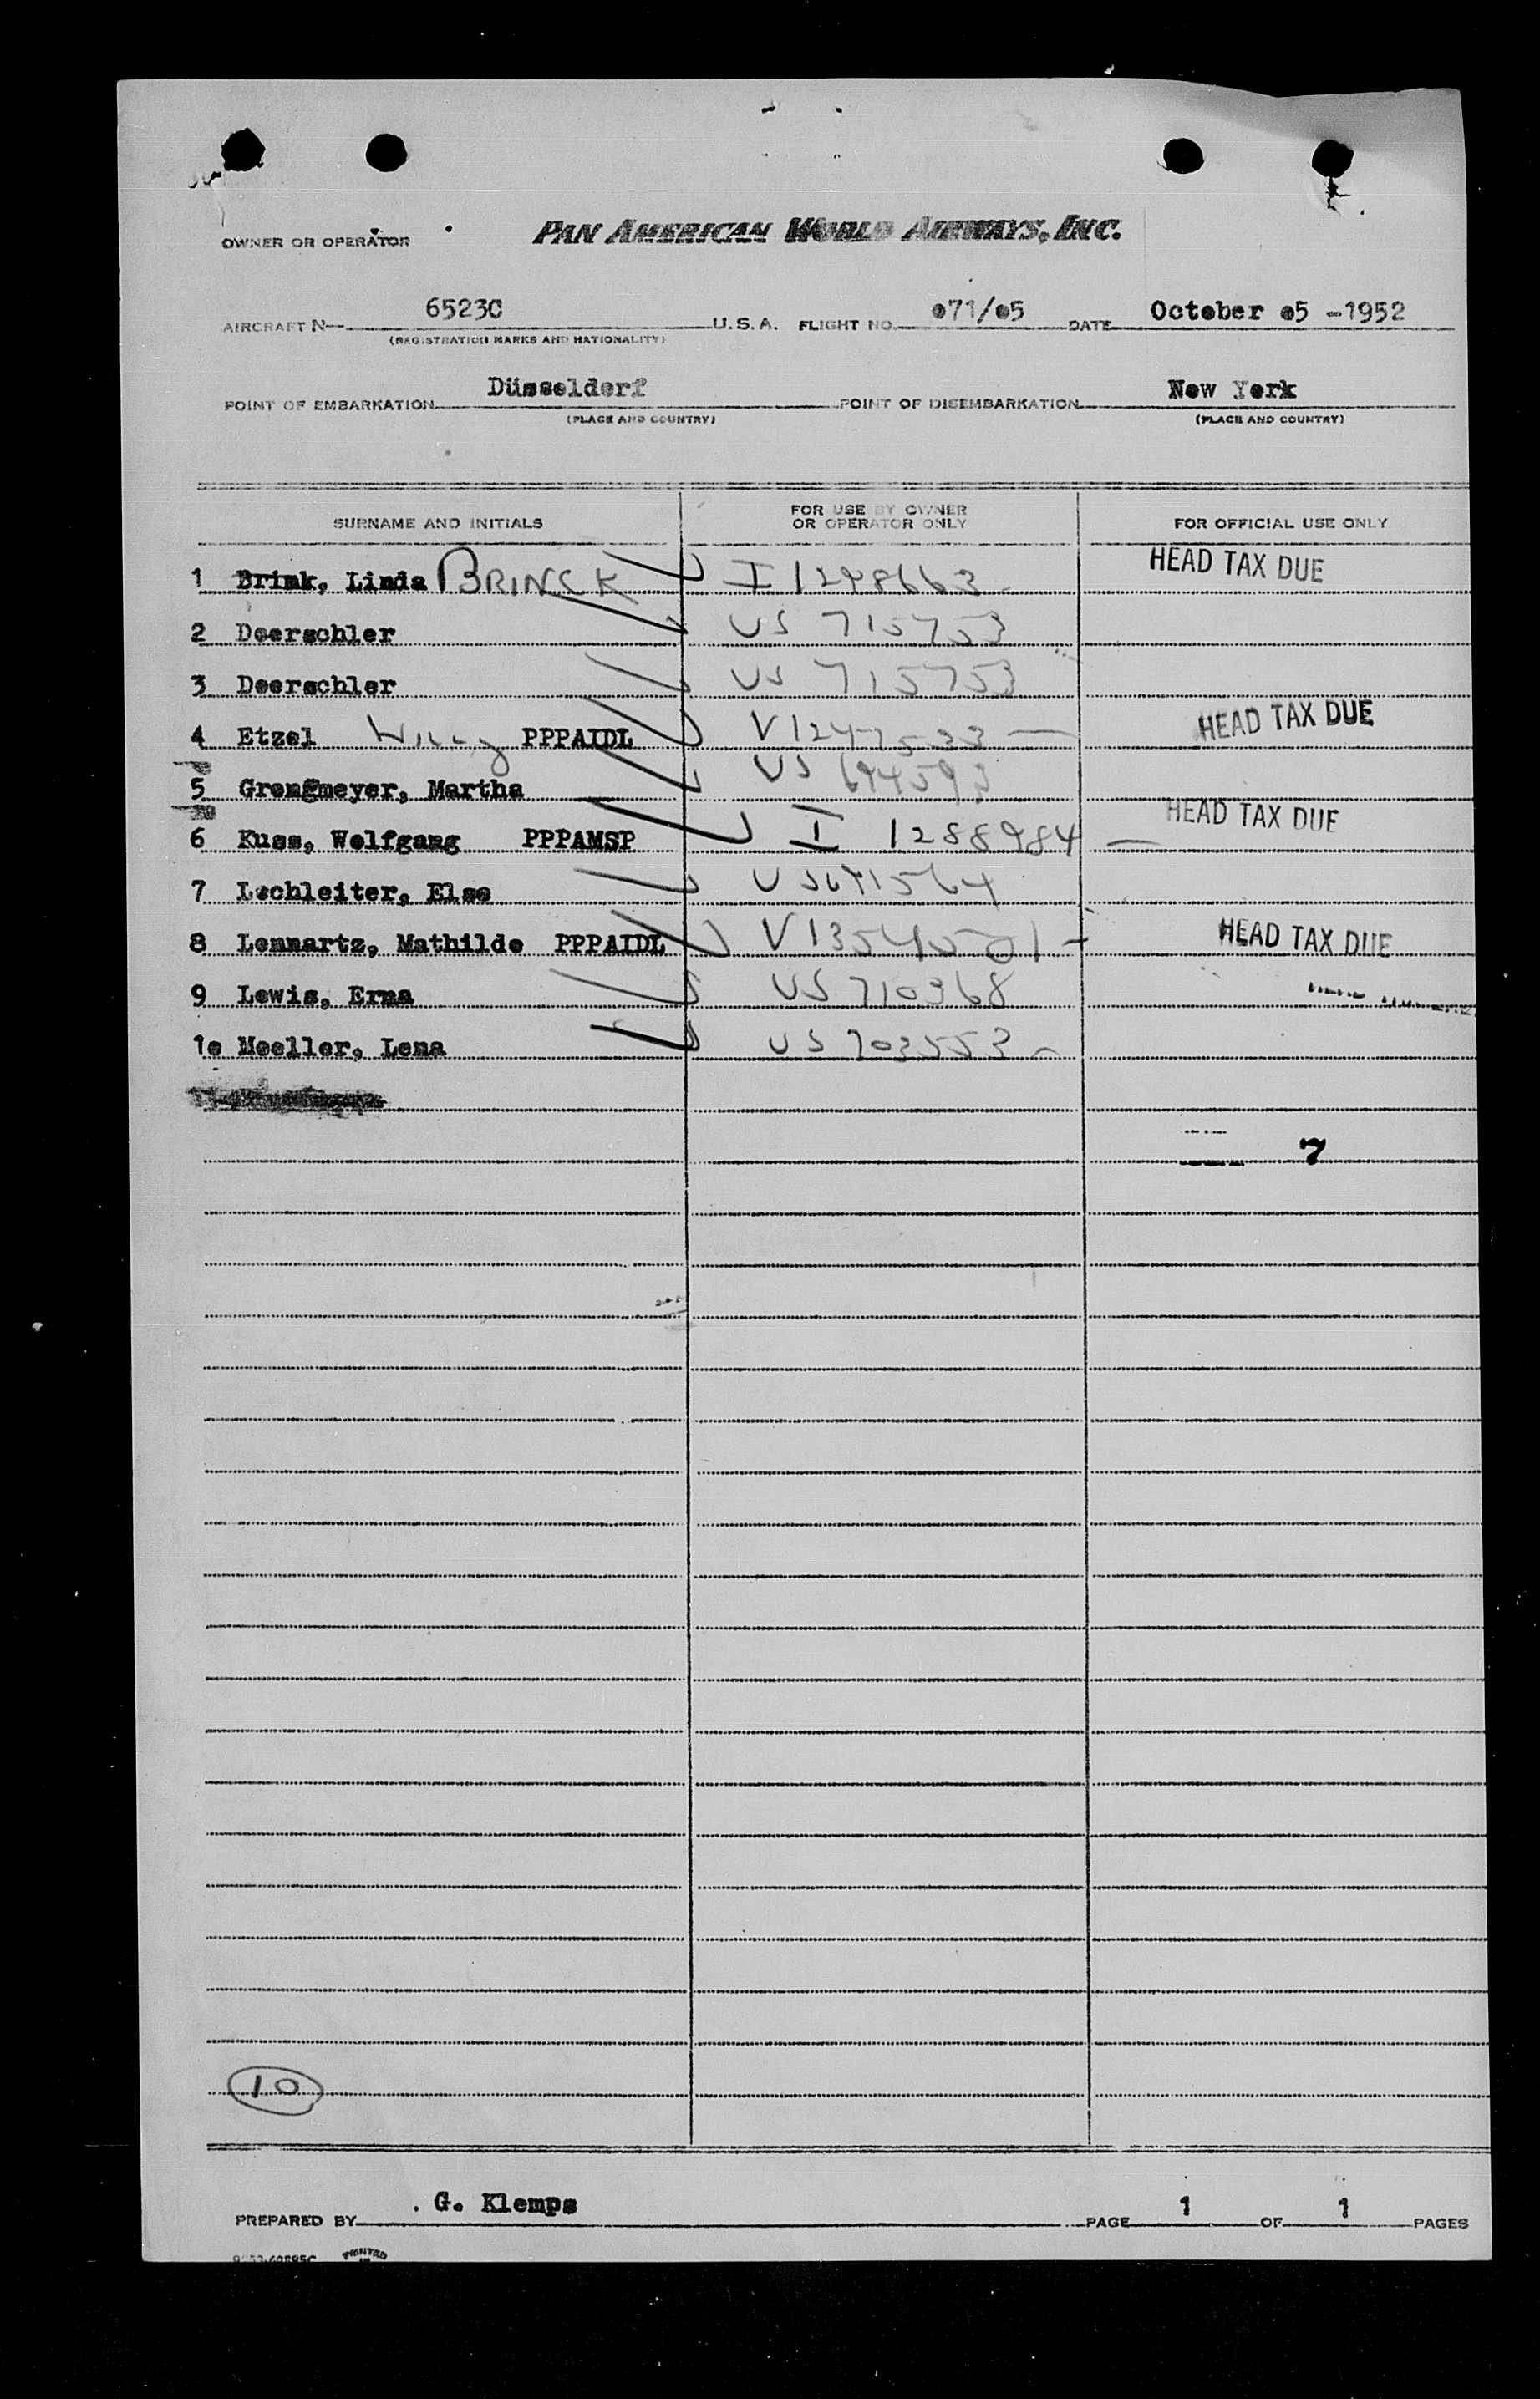 PAN AMERICAN WORLD AIRWAYS, INC.
OWNER OR OPERATOR
AIRCRAFT N— 6523C U.S.A. FLIGHT NO. 071/05 DATE October 05 -1952
(REGISTRATION MARKS AND NATIONALITY)
POINT OF EMBARKATION Düsseldorf POINT OF DISEMBARKATION New York
(PLACE AND COUNTRY) (PLACE AND COUNTRY)
SURNAME AND INITIALS FOR USE BY OWNER OR OPERATOR ONLY FOR OFFICIAL USE ONLY
1 Brink, Linda BRINCK I 1298663 HEAD TAX DUE
2 Doerschler US 715753
3 Doerschler US 715753
4 Etzel Willy PPPAIDL V1247533 HEAD TAX DUE
5 Grongmeyer, Martha US 694593
6 Kuss, Wolfgang PPPAMSP I 1288984 HEAD TAX DUE
7 Lochleiter, Else US 691564
8 Lennartz, Mathilde PPPAIDL V1354501 HEAD TAX DUE
9 Lewis, Erna US 710368
10 Moeller, Lena US 703553
7
10
PREPARED BY G. Klemps PAGE 1 OF 1 PAGES
PRINTED